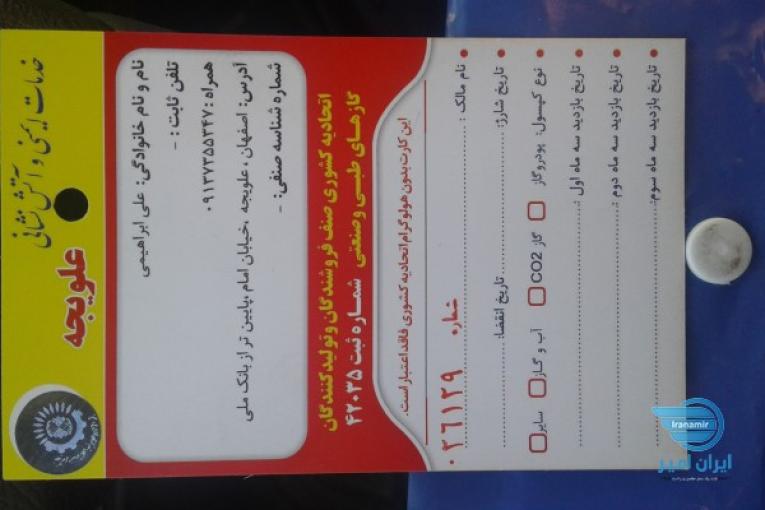 خدمات ایمنی و آتش نشانی
علویجه
نام و نام خانوادگی: علی ابراهیمی
تلفن ثابت: -
همراه: ۰۹۱۳۷۳۵۵۳۴۷
آدرس: اصفهان، علویجه، خیابان امام، پایین تر از بانک ملی
شماره شناسه صنفی: -
اتحادیه کشوری صنف فروشندگان و تولیدکنندگان
گازهای طبی و صنعتی شماره ثبت ۴۲۰۳۵
این کارت بدون هولوگرام اتحادیه کشوری فاقد اعتبار است.
نام مالک: شماره ۰۲۶۱۲۹
تاریخ شارژ: تاریخ انقضا:
نوع کپسول: پودر و گاز گاز CO2 آب و گاز سایر
تاریخ بازدید سه ماه اول:
تاریخ بازدید سه ماه دوم:
تاریخ بازدید سه ماه سوم:
Iranamir
ایران امیر